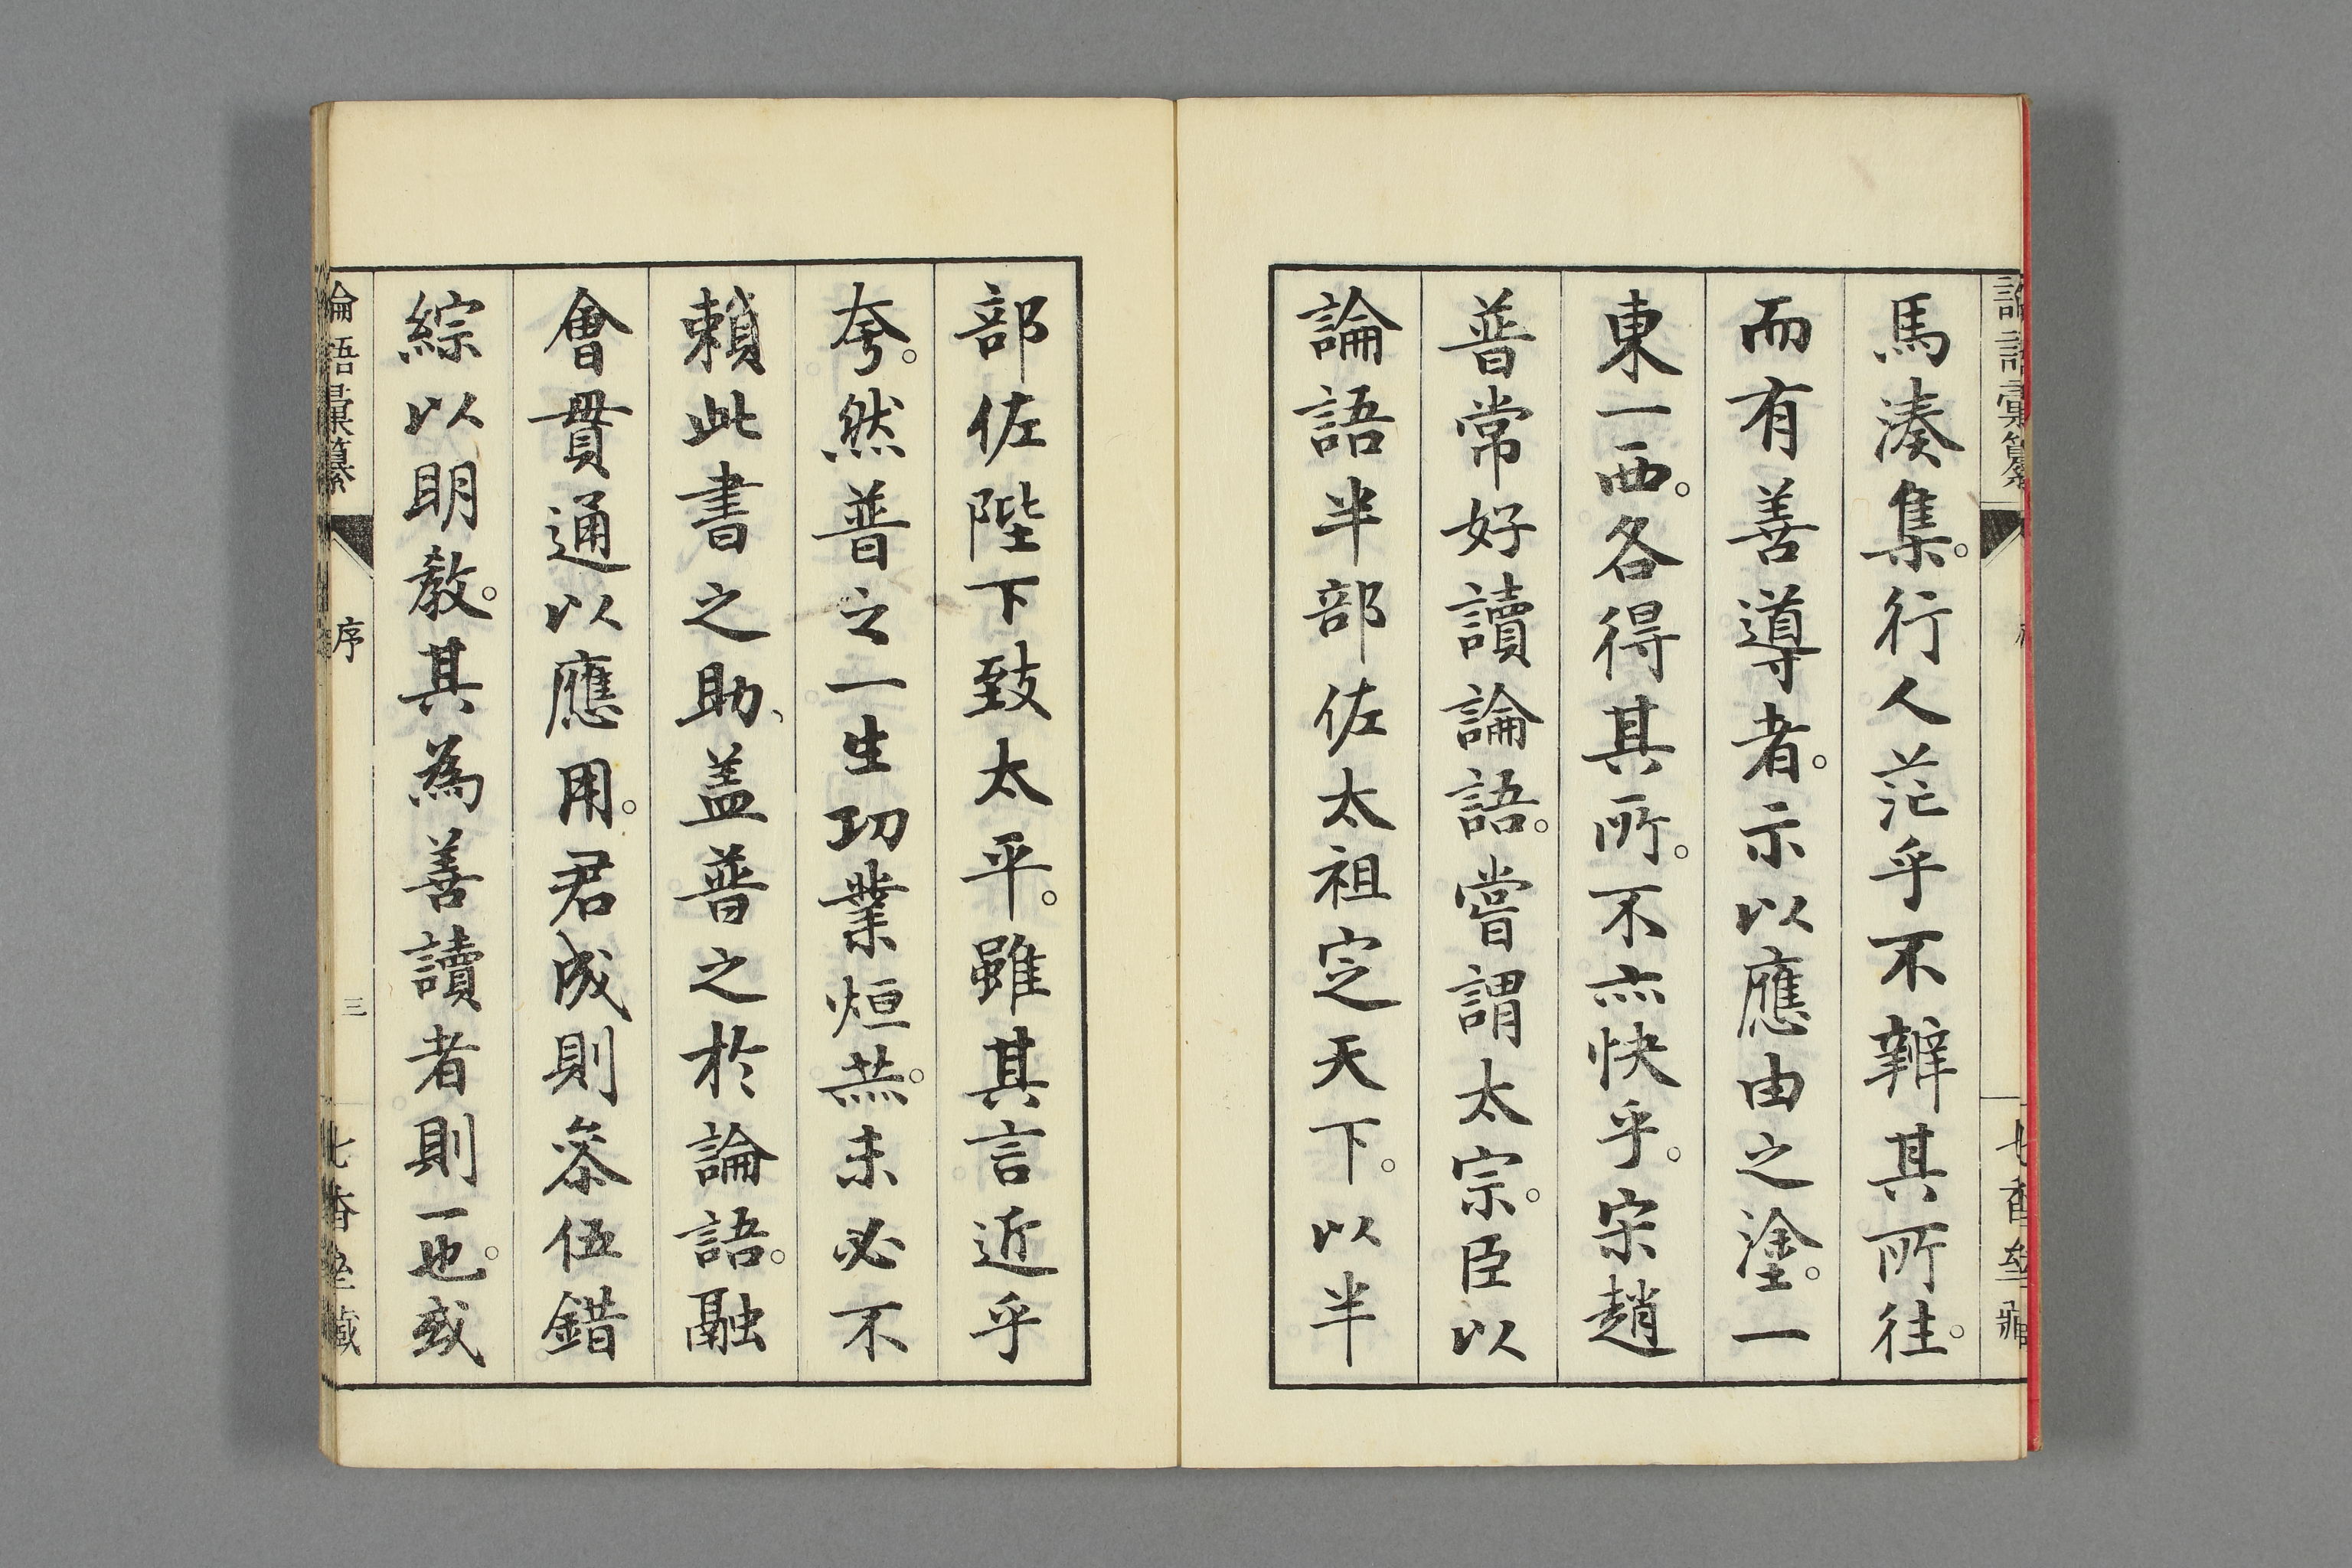 馬湊集。行人茫乎不辨其所往。
而有善導者。示以應由之塗。一
東一西。各得其所。不亦快乎。宋趙
普常好讀論語。嘗謂太宗。臣以
論語半部佐太祖定天下。以半
部佐陛下致太平。雖其言近乎
夸。然普之一生功業烜燕。未必不
賴此書之助、盖普之於論語。融
會貫通以應用。君成則叅伍錯
綜以明教。其為善讀者則一也。或
論語彙纂
序
三
七香齋藏